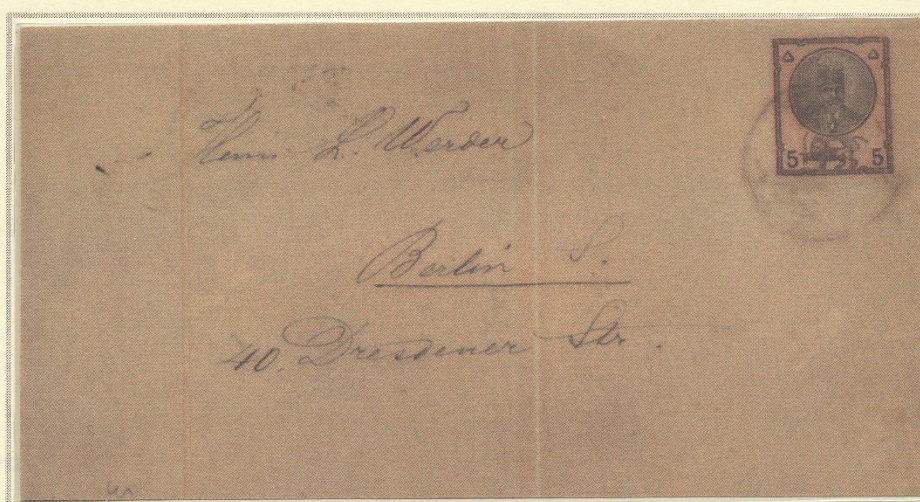 Herrn L. Werder
Berlin S.
40. Dresdener Str.
۵ ۵
5 5